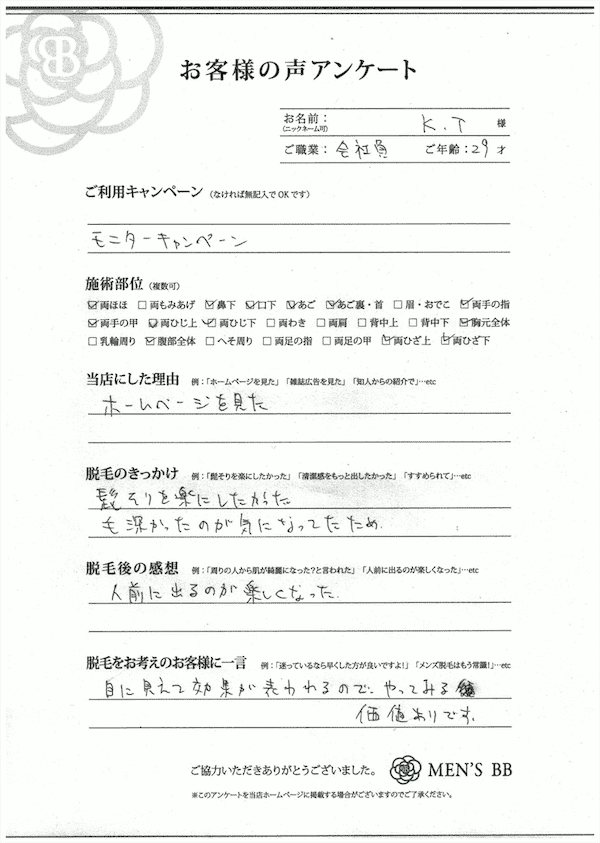 BB
お客様の声アンケート
お名前：
(ニックネーム可)
K.T 様
ご職業： 会社員 ご年齢：29才
ご利用キャンペーン （なければ無記入でOKです）
モニターキャンペーン
施術部位 （複数可）
☑両ほほ □両もみあげ ☑鼻下 ☑口下 ☑あご ☑あご裏・首 □眉・おでこ ☑両手の指
☑両手の甲 ☑両ひじ上 ☑両ひじ下 □両わき □両肩 □背中上 □背中下 ☑胸元全体
□乳輪周り ☑腹部全体 □へそ周り □両足の指 □両足の甲 ☑両ひざ上 ☑両ひざ下
当店にした理由 例：「ホームページを見た」「雑誌広告を見た」「知人からの紹介で」…etc
ホームページを見た
脱毛のきっかけ 例：「髭そりを楽にしたかった」「清潔感をもっと出したかった」「すすめられて」…etc
髭そりを楽にしたかった
毛深かったのが気になってたため.
脱毛後の感想 例：「周りの人から肌が綺麗になった？と言われた」「人前に出るのが楽しくなった」…etc
人前に出るのが楽しくなった.
脱毛をお考えのお客様に一言 例：「迷っているなら早くした方が良いですよ！」「メンズ脱毛はもう常識！」…etc
目に見えて効果が表われるので、やってみる
価値ありです.
ご協力いただきありがとうございました。 MEN'S BB
※このアンケートを当店ホームページに掲載する場合がございますのでご了承ください。